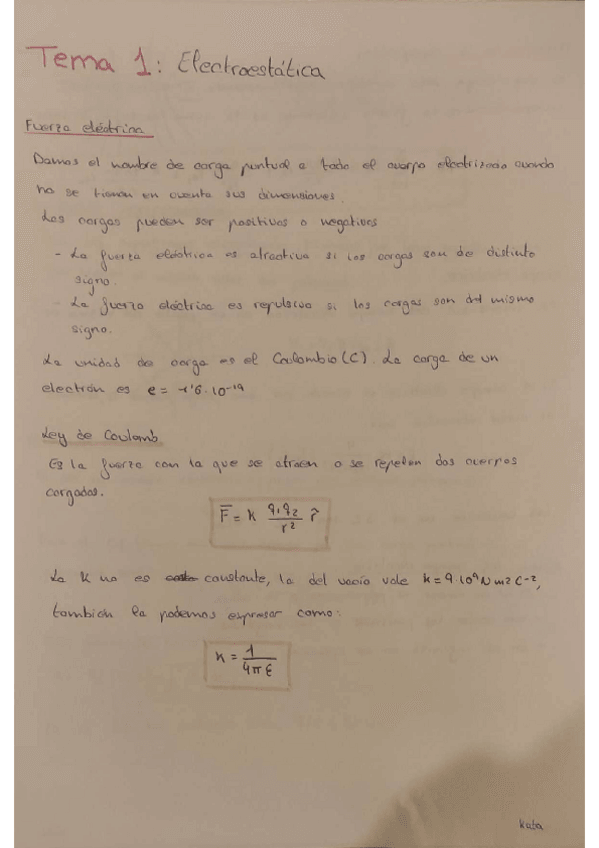 Tema 1: Electroestática
Fuerza eléctrica
Damos el nombre de carga puntual a todo el cuerpo electrizado cuando
no se tienen en cuenta sus dimensiones.
Las cargas pueden ser positivas o negativas
- La fuerza eléctrica es atractiva si las cargas son de distinto
signo.
- La fuerza eléctrica es repulsiva si las cargas son del mismo
signo.
La unidad de carga es el Coulombio (C). La carga de un
electrón es e = -1'6·10⁻¹⁹
Ley de Coulomb
Es la fuerza con la que se atraen o se repelen dos cuerpos
cargados.
F̅ = K q₁q₂/r² r̂
La K no es constante, la del vacío vale k = 9·10⁹ N m² C⁻²,
también la podemos expresar como:
K = 1/4πε
kata